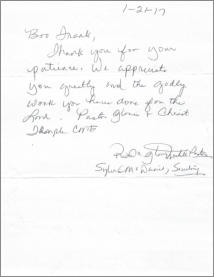 1-21-17
Bro Frank,
Thank you for your
patience. We appreciate
you greatly and the Godly
work you have done for the
Lord. Pastor Gloria & Christ
Temple
Sylvia McDaniel,